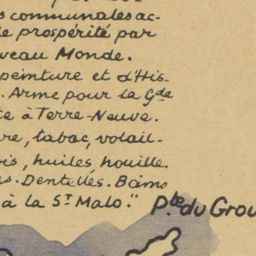 s communales ac-
e prospérité par
uveau Monde.
peinture et d'His-
. Arme pour la Gde
te à Terre-Neuve.
re, tabac, volail-
ois, huiles, houille.
s. Dentelles. Bains
à la St Malo."
Pte du Grou